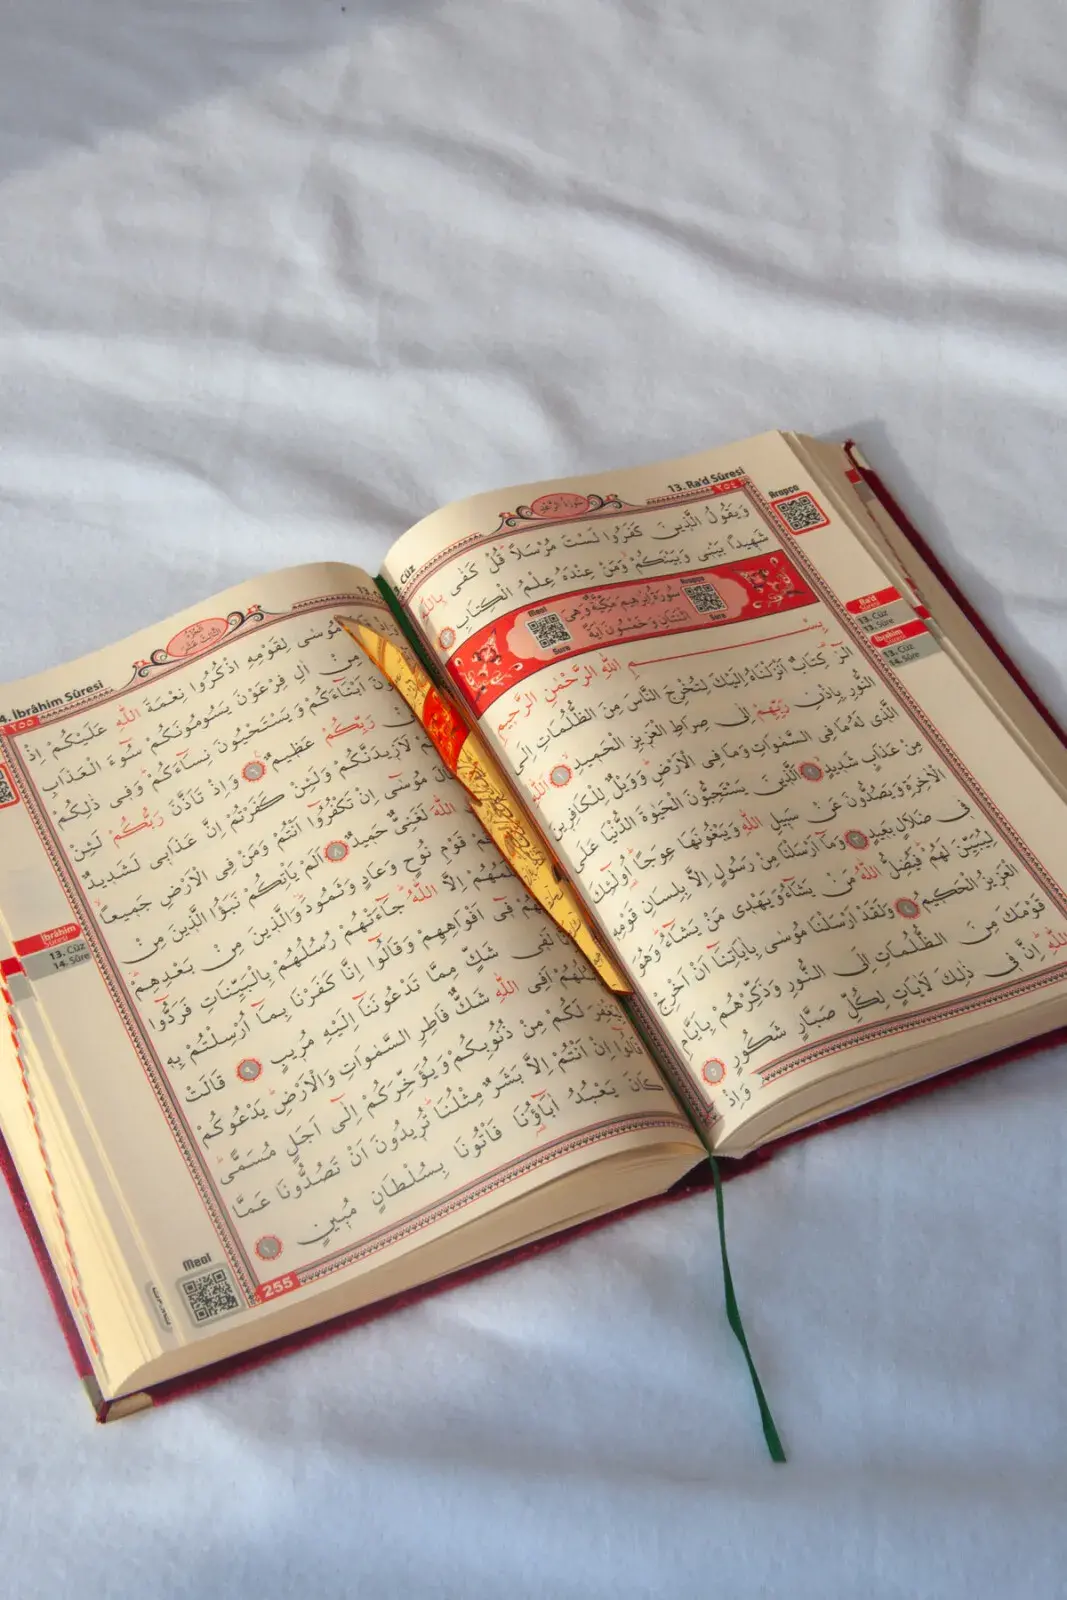 13. Ra'd Sûresi
٢٥٤
Arapça
سُورَةُ الرَّعْدِ
Cüz
وَيَقُولُ الَّذينَ كَفَرُوا لَسْتَ مُرْسَلاً قُلْ كَفٰى بِاللّٰهِ
شَهيداً بَيْنى وَبَيْنَكُمْ وَمَنْ عِنْدَهُ عِلْمُ الْكِتَابِ
Arapça
Sure
سُورَةُ اِبْرٰهيمَ مَكِّيَّةٌ وَهِىَ
اثْنَتَانِ وَخَمْسُونَ اٰيَةً
Meal
Sure
بِسْمِ اللّٰهِ الرَّحْمٰنِ الرَّحيمِ
الٓرٰ كِتَابٌ اَنْزَلْنَاهُ اِلَيْكَ لِتُخْرِجَ النَّاسَ مِنَ الظُّلُمَاتِ اِلَى
النُّورِ بِاِذْنِ رَبِّهِمْ اِلٰى صِرَاطِ الْعَزيزِ الْحَميدِ ١ اَللّٰهِ
الَّذى لَهُ مَا فِى السَّمٰوَاتِ وَمَا فِى الْاَرْضِ وَوَيْلٌ لِلْكَافِرينَ
مِنْ عَذَابٍ شَديدٍ ٢ اَلَّذينَ يَسْتَحِبُّونَ الْحَيٰوةَ الدُّنْيَا عَلَى
الْاٰخِرَةِ وَيَصُدُّونَ عَنْ سَبيلِ اللّٰهِ وَيَبْغُونَهَا عِوَجاً اُولٰٓئِكَ
فى ضَلَالٍ بَعيدٍ ٣ وَمَٓا اَرْسَلْنَا مِنْ رَسُولٍ اِلَّا بِلِسَانِ قَوْمِه
لِيُبَيِّنَ لَهُمْ فَيُضِلُّ اللّٰهُ مَنْ يَشَٓاءُ وَيَهْدى مَنْ يَشَٓاءُ وَهُوَ
الْعَزيزُ الْحَكيمُ ٤ وَلَقَدْ اَرْسَلْنَا مُوسٰى بِاٰيَاتِنَٓا اَنْ اَخْرِجْ
قَوْمَكَ مِنَ الظُّلُمَاتِ اِلَى النُّورِ وَذَكِّرْهُمْ بِاَيَّامِ
اللّٰهِ اِنَّ فى ذٰلِكَ لَاٰيَاتٍ لِكُلِّ صَبَّارٍ شَكُورٍ ٥
وَاِذْ
Ra'd
Sûresi
13. Cüz
13. Sûre
İbrahim
Sûresi
13. Cüz
14. Sûre
4. İbrâhim Sûresi
٢٥٥
اَلْجُزْءُ
الثَّالِثَ عَشَرَ
13.
مُوسٰى لِقَوْمِهِ اذْكُرُوا نِعْمَةَ اللّٰهِ عَلَيْكُمْ اِذْ
مِنْ اٰلِ فِرْعَوْنَ يَسُومُونَكُمْ سُٓوءَ الْعَذَابِ
اَبْنَٓاءَكُمْ وَيَسْتَحْيُونَ نِسَٓاءَكُمْ وَفى ذٰلِكُمْ
رَبِّكُمْ عَظيمٌ ٦ وَاِذْ تَاَذَّنَ رَبُّكُمْ لَئِنْ
لَاَزيدَنَّكُمْ وَلَئِنْ كَفَرْتُمْ اِنَّ عَذَابى لَشَديدٌ
مُوسٰٓى اِنْ تَكْفُرُٓوا اَنْتُمْ وَمَنْ فِى الْاَرْضِ جَميعاً
اللّٰهَ لَغَنِىٌّ حَميدٌ ٨ اَلَمْ يَاْتِكُمْ نَبَؤُا الَّذينَ مِنْ
قَوْمِ نُوحٍ وَعَادٍ وَثَمُودَ وَالَّذينَ مِنْ بَعْدِهِمْ
اِلَّا اللّٰهُ جَٓاءَتْهُمْ رُسُلُهُمْ بِالْبَيِّنَاتِ فَرَدُّٓوا
فٓى اَفْوَاهِهِمْ وَقَالُٓوا اِنَّا كَفَرْنَا بِمَٓا اُرْسِلْتُمْ بِه
لَفى شَكٍّ مِمَّا تَدْعُونَنَٓا اِلَيْهِ مُريبٍ ٩ قَالَتْ
اَفِى اللّٰهِ شَكٌّ فَاطِرِ السَّمٰوَاتِ وَالْاَرْضِ يَدْعُوكُمْ
لَكُمْ مِنْ ذُنُوبِكُمْ وَيُؤَخِّرَكُمْ اِلٰٓى اَجَلٍ مُسَمًّى
قَالُٓوا اِنْ اَنْتُمْ اِلَّا بَشَرٌ مِثْلُنَا تُريدُونَ اَنْ تَصُدُّونَا عَمَّا
كَانَ يَعْبُدُ اٰبَٓاؤُنَا فَاْتُونَا بِسُلْطَانٍ مُبينٍ ١٠
İbrahim
Sûresi
13. Cüz
14. Sûre
255
Meal